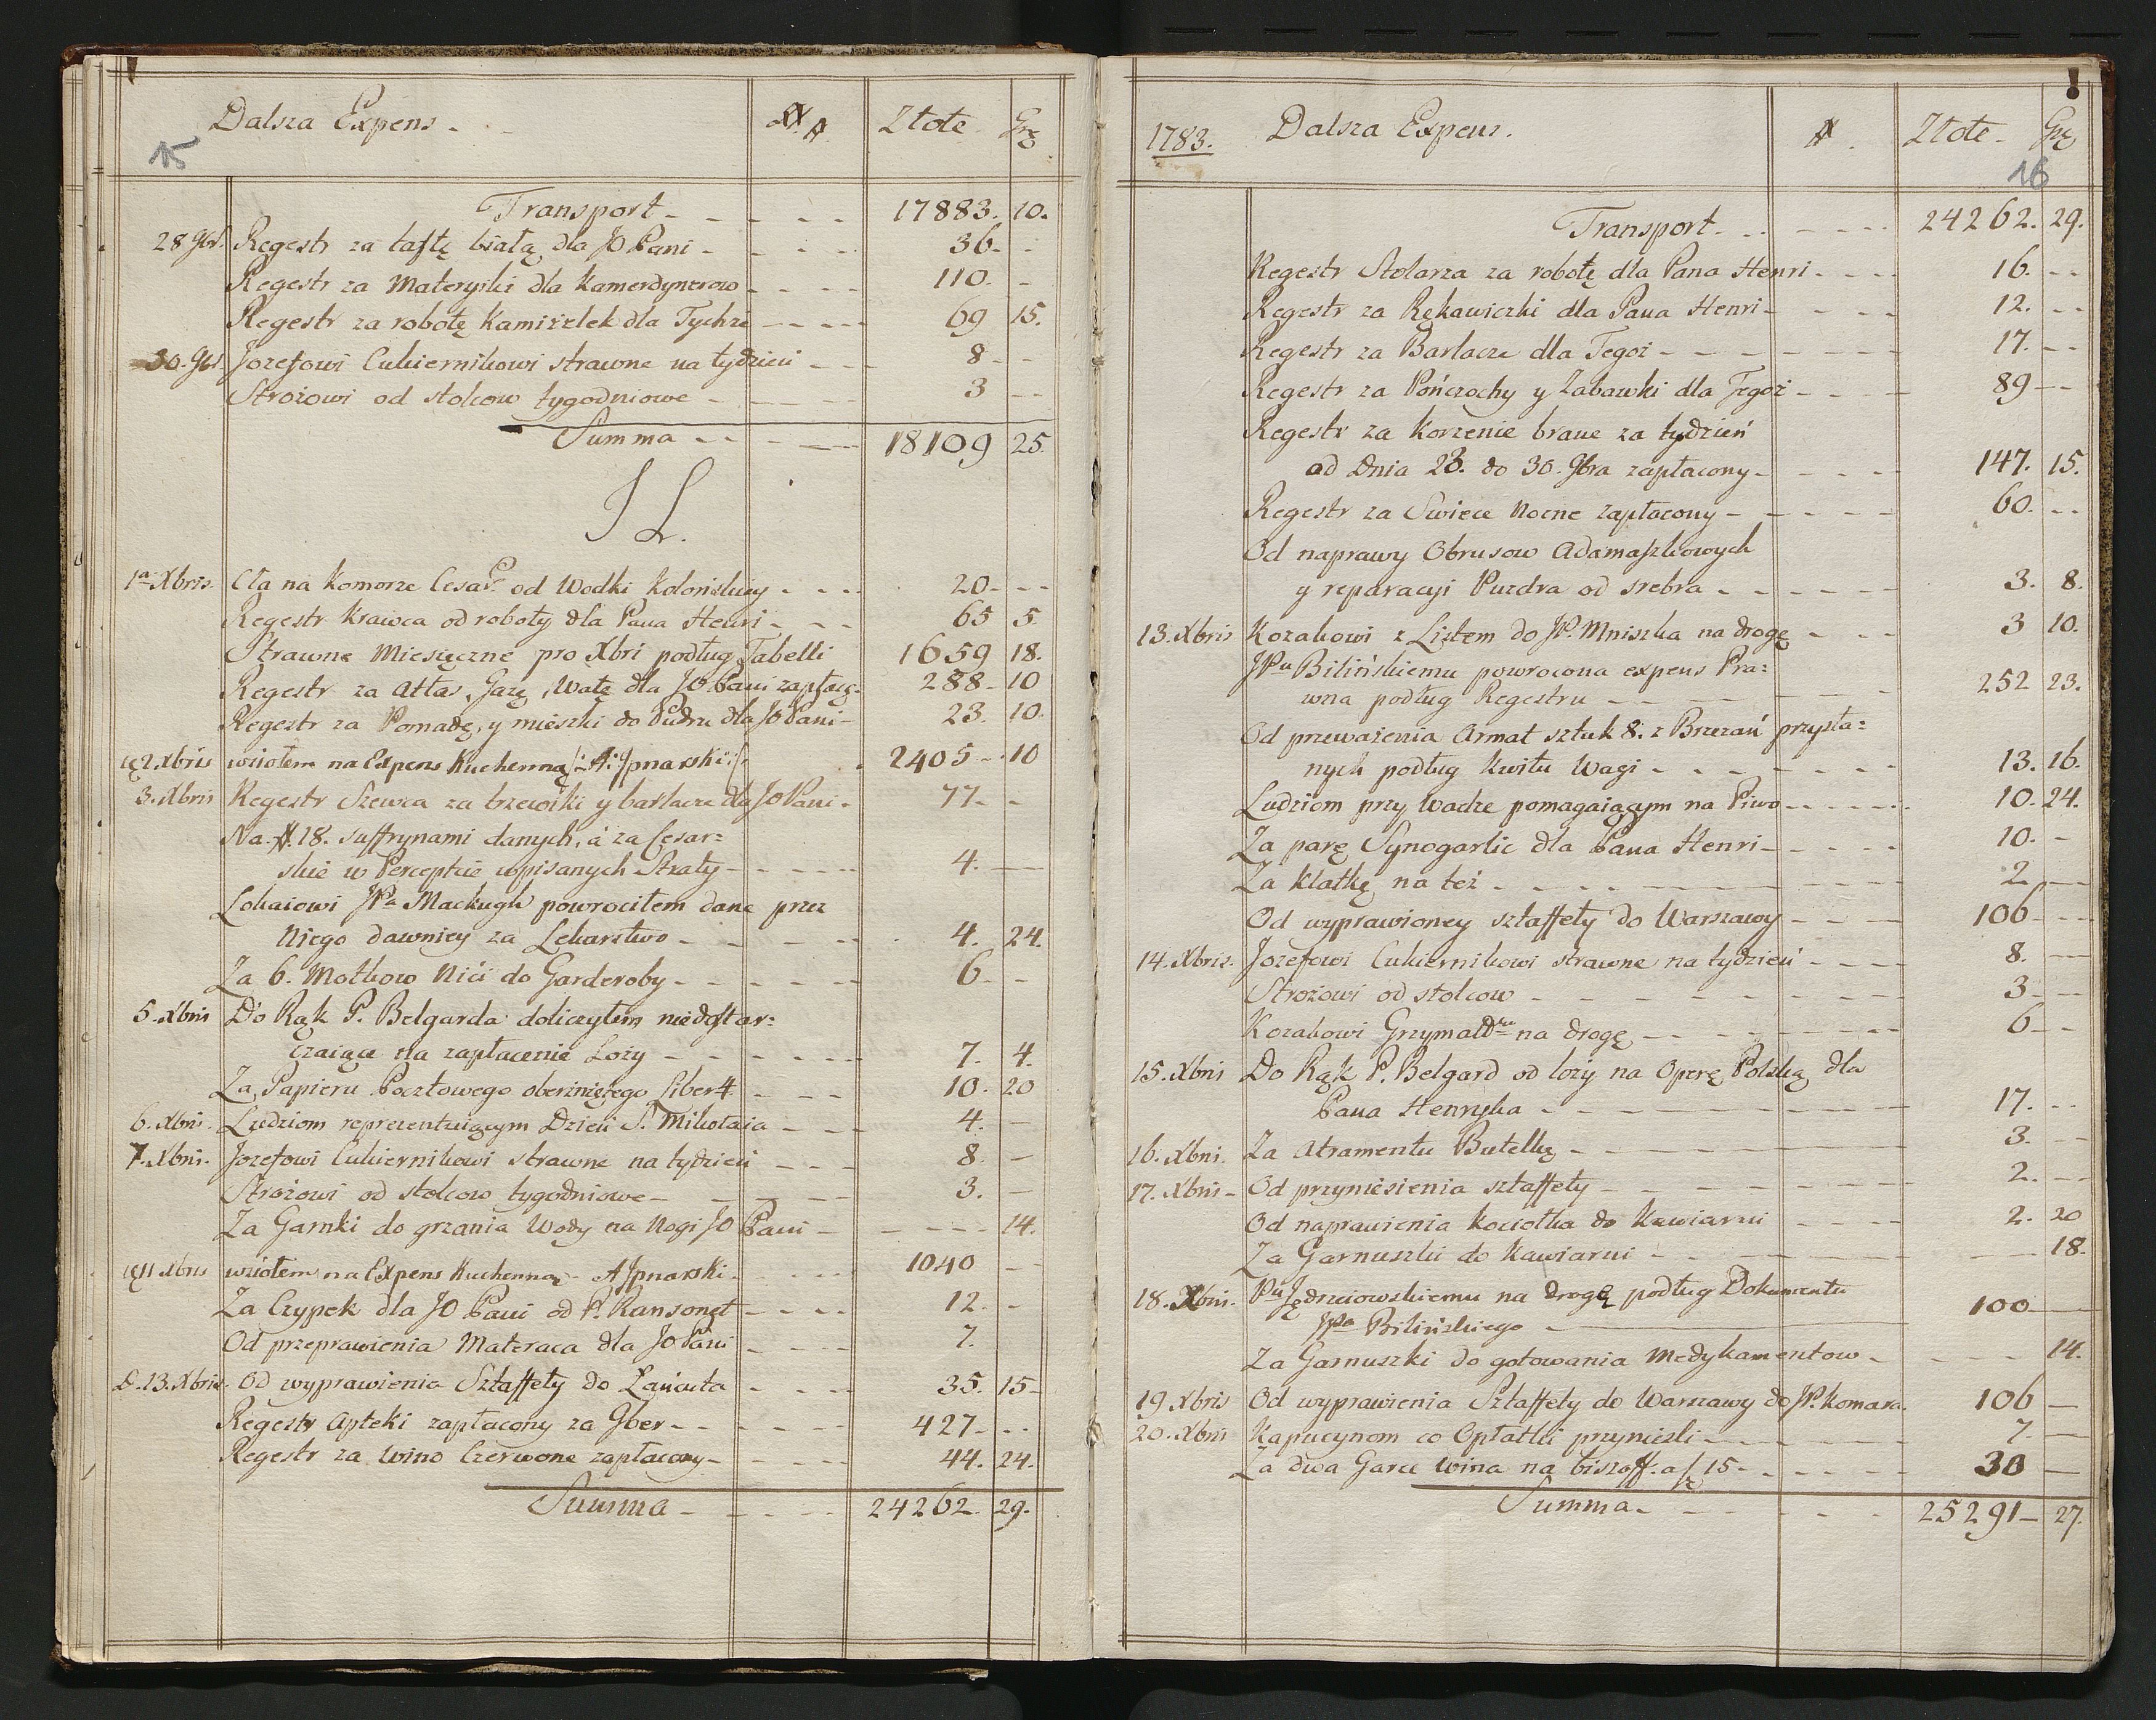 Dalsza Expens. # Złote Grz
15
Transport 17883. 10.
28 9br. Regestr za taftę białą dla JO Pani 36.
Regestr za Materyiki dla Kamerdynerow 110.
Regestr za robotę Kamizelek dla Tychże 69 15.
30. 9br. Jozefowi Cukiernikowi strawne na tydzień 8
Strożowi od stolcow tygodniowe 3
Summa 18109 25.
1a Xbris Cła na Komorze Cesar. od Wodki Kolońskiey 20
Regestr Krawca od roboty dla Pana Henri 65 5.
Strawne Miesięczne pro Xbri podług Tabelli 1659 18.
Regestr za Atłas, Gazę, Watę dla JO Pani zapłacę. 288 10
Regestr za Pomadę, y mieszki do Pudru dla JO Pani 23. 10.
2. Xbris wziołem na Expens Kuchenną 2405 10
3. Xbris Regestr Szewca za trzewiki y barłacze dla JO Pani 77
Na # 18. suffrynami danych, á za Cesar:
skie w Percepcie wpisanych Straty 4.
Lokaiowi JPa Mackugh powrociłem dane przez
Niego dawniey za Lekarstwo 4. 24.
Za 6. Motkow Nici do Garderoby 6
5. Xbris Do Rąk P. Belgarda doliczyłem niedostar:
czaiące na zapłacenie Loży 7. 4.
Za Papieru Pocztowego oberzniętego Liber 4 10. 20
6. Xbris. Ludziom reprezentuiącym Dzień S. Mikołaia 4.
7. Xbris. Jozefowi Cukiernikowi strawne na tydzień 8
Strożowi od stolcow tygodniowe 3.
Za Garnki do grzania Wody na Nogi JO Pani 14.
11 Xbris wziołem na Expens Kuchenną 1040
Za Czypek dla JO Pani od P. Ransonet 12.
Od przeprawienia Materaca dla JO Pani 7.
D. 13. Xbris. Od wyprawienia Sztaffety do Łańcuta 35. 15
Regestr Apteki zapłacony za 9ber 427
Regestr za Wino Czerwone zapłacony 44. 24.
Summa 24262. 29.
1783. Dalsza Expens. # Złote Grz
16
Transport 24262. 29.
Regestr Stolarza za robotę dla Pana Henri 16.
Regestr za Rękawiczki dla Pana Henri 12.
Regestr za Barłacze dla Tegoż 17.
Regestr za Pończochy y Zabawki dla Tegoż 89
Regestr za Korzenie brane za tydzień
od Dnia 23. do 30. 9bra zapłacony 147. 15.
Regestr za Swiece Nocne zapłacony 60.
Od naprawy Obrusow Adamaszkowych
y reparacyi Puzdra od srebra 3. 8.
13. Xbris Kozakowi z Listem do JP. Mniszka na drogę 3 10.
JPu Bilińskiemu powrocona expens Pra:
wna podług Regestru 252 23.
Od przeważenia Armat sztuk 8. z Brzeżan przysła:
nych podług Kwitu Wagi 13. 16.
Ludziom przy Wadze pomagaiącym na Piwo 10. 24.
Za parę Synogarlic dla Pana Henri 10.
Za Klatkę na też 2
Od wyprawioney sztaffety do Warszawy 106
14. Xbris. Jozefowi Cukiernikowi strawne na tydzień 8.
Strożowi od stolcow 3
Kozakowi na drogę 6
15. Xbris Do Rąk P. Belgard od loży na Operę Polską dla
Pana Henryka 17.
16. Xbris. Za Atramentu Butelkę 3.
17. Xbris Od przyniesienia sztaffety 2.
Od naprawienia kociołka do Kawiarni 2. 20
Za Garnuszki do Kawiarni 18.
18. Xbris. Pu Jędrzeiowskiemu na drogę podług Dokumentu
JPa Bilińskiego 100
Za Garnuszki do gotowania Medykamentow 14.
19 Xbris Od wyprawienia Sztaffety do Warszawy do JP. Komara. 106
20. Xbris Kapucynom co Opłatki przynieśli 7.
Za dwa Garce Wina na biszoff. a f 15 30
Summa 25291 27.